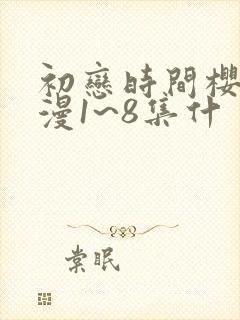 初戀時間櫻
漫1~8集什
棠眠